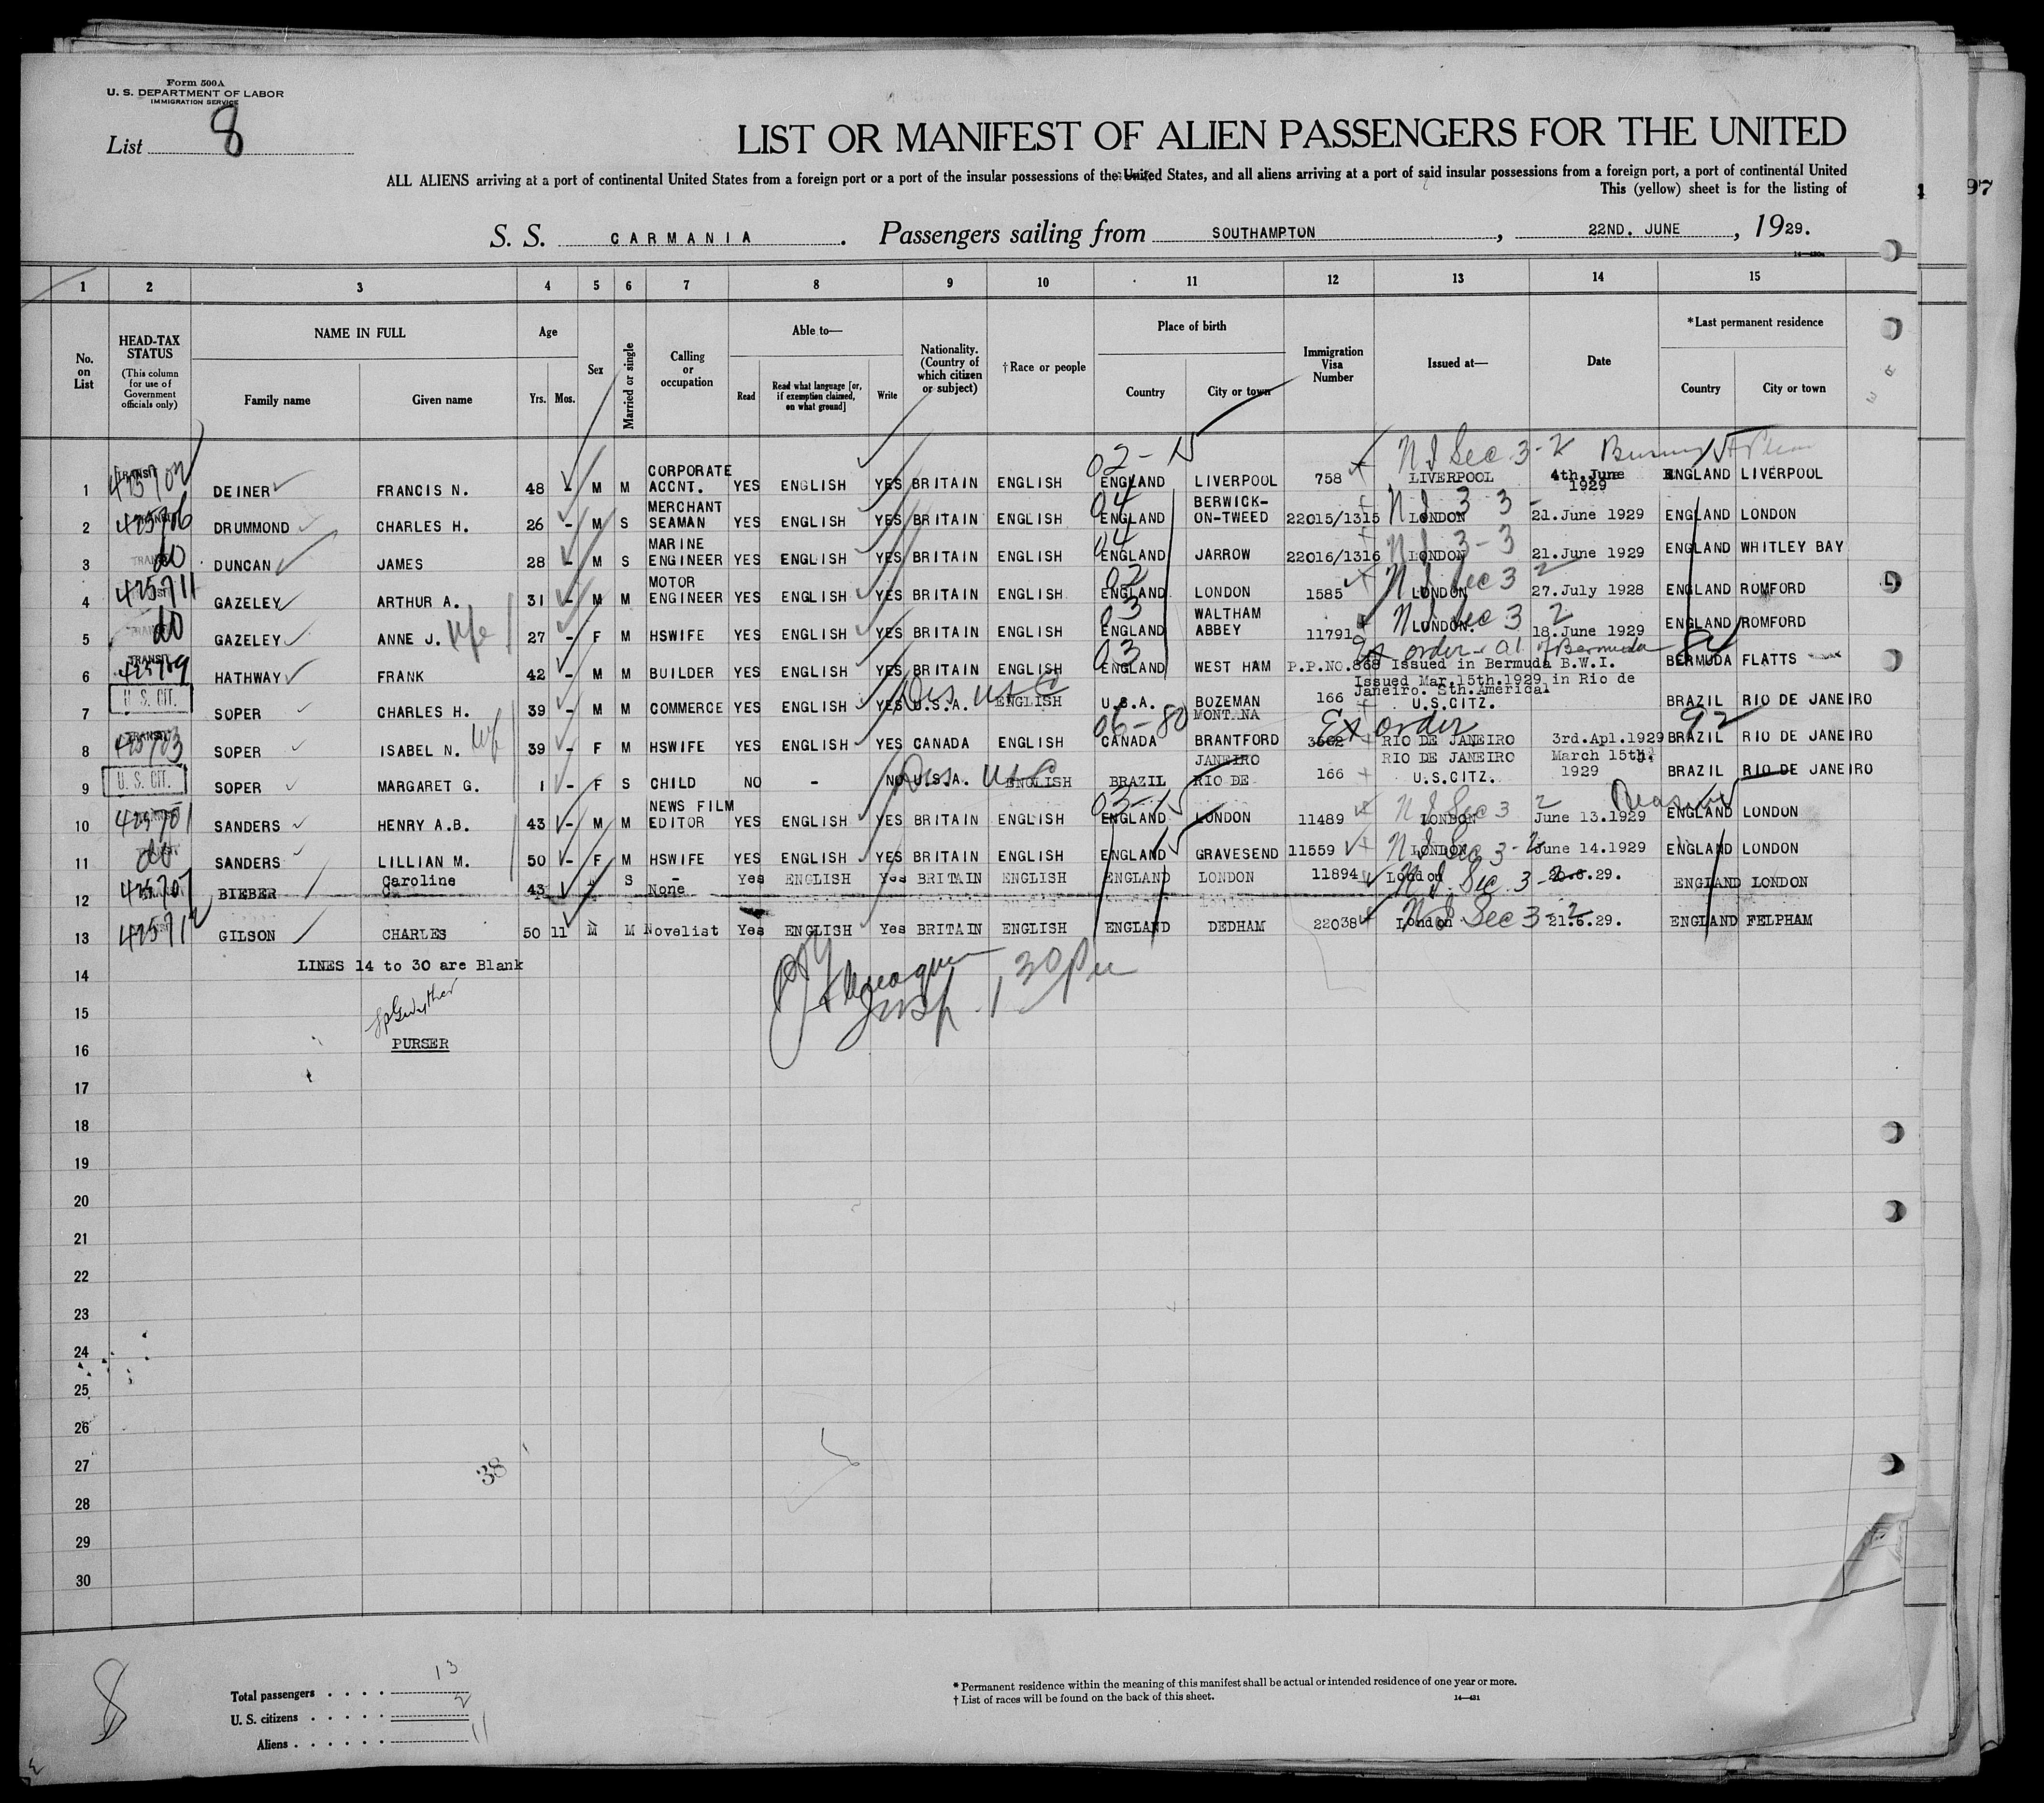 Form 500A
U. S. DEPARTMENT OF LABOR
IMMIGRATION SERVICE
List 8
LIST OR MANIFEST OF ALIEN PASSENGERS FOR THE UNITED
ALL ALIENS arriving at a port of continental United States from a foreign port or a port of the insular possessions of the United States, and all aliens arriving at a port of said insular possessions from a foreign port, a port of continental United
This (yellow) sheet is for the listing of
97
S. S. CARMANIA. Passengers sailing from SOUTHAMPTON, 22ND. JUNE, 1929.
1 2 3 4 5 6 7 8 9 10 11 12 13 14 15
No. on List
HEAD-TAX STATUS (This column for use of Government officials only)
NAME IN FULL Family name Given name
Age Yrs. Mos.
Sex
Married or single
Calling or occupation
Able to— Read Read what language [or, if exemption claimed, on what ground] Write
Nationality. (Country of which citizen or subject)
†Race or people
Place of birth Country City or town
Immigration Visa Number
Issued at—
Date
*Last permanent residence Country City or town
02-15 N I Sec 3-2
1 TRANSIT DEINER FRANCIS N. 48 - M M CORPORATE ACCNT. YES ENGLISH YES BRITAIN ENGLISH ENGLAND LIVERPOOL 758 LIVERPOOL 4th.June 1929 ENGLAND LIVERPOOL
2 425706 DRUMMOND CHARLES H. 26 - M S MERCHANT SEAMAN YES ENGLISH YES BRITAIN ENGLISH 04 ENGLAND BERWICK-ON-TWEED 22015/1315 LONDON N I 3-3 21.June 1929 ENGLAND LONDON
3 do DUNCAN JAMES 28 - M S MARINE ENGINEER YES ENGLISH YES BRITAIN ENGLISH 04 ENGLAND JARROW 22016/1316 LONDON N I 3-3 21.June 1929 ENGLAND WHITLEY BAY
4 425711 GAZELEY ARTHUR A. 31 - M M MOTOR ENGINEER YES ENGLISH YES BRITAIN ENGLISH 02 ENGLAND LONDON 1585 LONDON N I Sec 3 2 27.July 1928 ENGLAND ROMFORD
5 do GAZELEY ANNE J. wfe 27 - F M HSWIFE YES ENGLISH YES BRITAIN ENGLISH 03 ENGLAND WALTHAM ABBEY 11791 LONDON. N I Sec 3 2 18.June 1929 ENGLAND ROMFORD
6 TRANSIT 425709 HATHWAY FRANK 42 - M M BUILDER YES ENGLISH YES BRITAIN ENGLISH 03 ENGLAND WEST HAM P.P.NO.868 Issued in Bermuda B.W.I. Ex order of Bermuda BERMUDA FLATTS
7 U. S. CIT. SOPER CHARLES H. 39 - M M COMMERCE YES ENGLISH YES U.S.A. ENGLISH U.S.A. BOZEMAN MONTANA 166 Issued Mar.15th.1929 in Rio de Janeiro. Sth.America U.S.CITZ. BRAZIL RIO DE JANEIRO
8 TRANSIT 425703 SOPER ISABEL N. wf 39 - F M HSWIFE YES ENGLISH YES CANADA ENGLISH 06-80 CANADA BRANTFORD 3562 Ex order RIO DE JANEIRO 3rd.Apl.1929 92 BRAZIL RIO DE JANEIRO
9 U. S. CIT. SOPER MARGARET G. 1 - F S CHILD NO - NO U.S.A. ENGLISH BRAZIL RIO DE JANEIRO 166 RIO DE JANEIRO U.S.CITZ. March 15th. 1929 BRAZIL RIO DE JANEIRO
10 425701 SANDERS HENRY A.B. 43 - M M NEWS FILM EDITOR YES ENGLISH YES BRITAIN ENGLISH 03-15 ENGLAND LONDON 11489 LONDON N I Sec 3 2 June 13.1929 ENGLAND LONDON
11 do SANDERS LILLIAN M. 50 - F M HSWIFE YES ENGLISH YES BRITAIN ENGLISH ENGLAND GRAVESEND 11559 LONDON N I Sec 3-2 June 14.1929 ENGLAND LONDON
12 425707 BIEBER Caroline 43 S None Yes ENGLISH Yes BRITAIN ENGLISH ENGLAND LONDON 11894 London N I Sec 3-2 .6.29. ENGLAND LONDON
13 425712 GILSON CHARLES 50 11 M M Novelist Yes ENGLISH Yes BRITAIN ENGLISH ENGLAND DEDHAM 22038 London N I Sec 3 2 21.6.29. ENGLAND FELPHAM
14 LINES 14 to 30 are Blank
Insp. 1 30 Pm
15
16 PURSER
17
18
19
20
21
22
23
24
25
26
27 38
28
29
30
8
Total passengers . . . . 13
U. S. citizens . . . . . 2
Aliens . . . . . . 11
* Permanent residence within the meaning of this manifest shall be actual or intended residence of one year or more.
† List of races will be found on the back of this sheet. 14—431